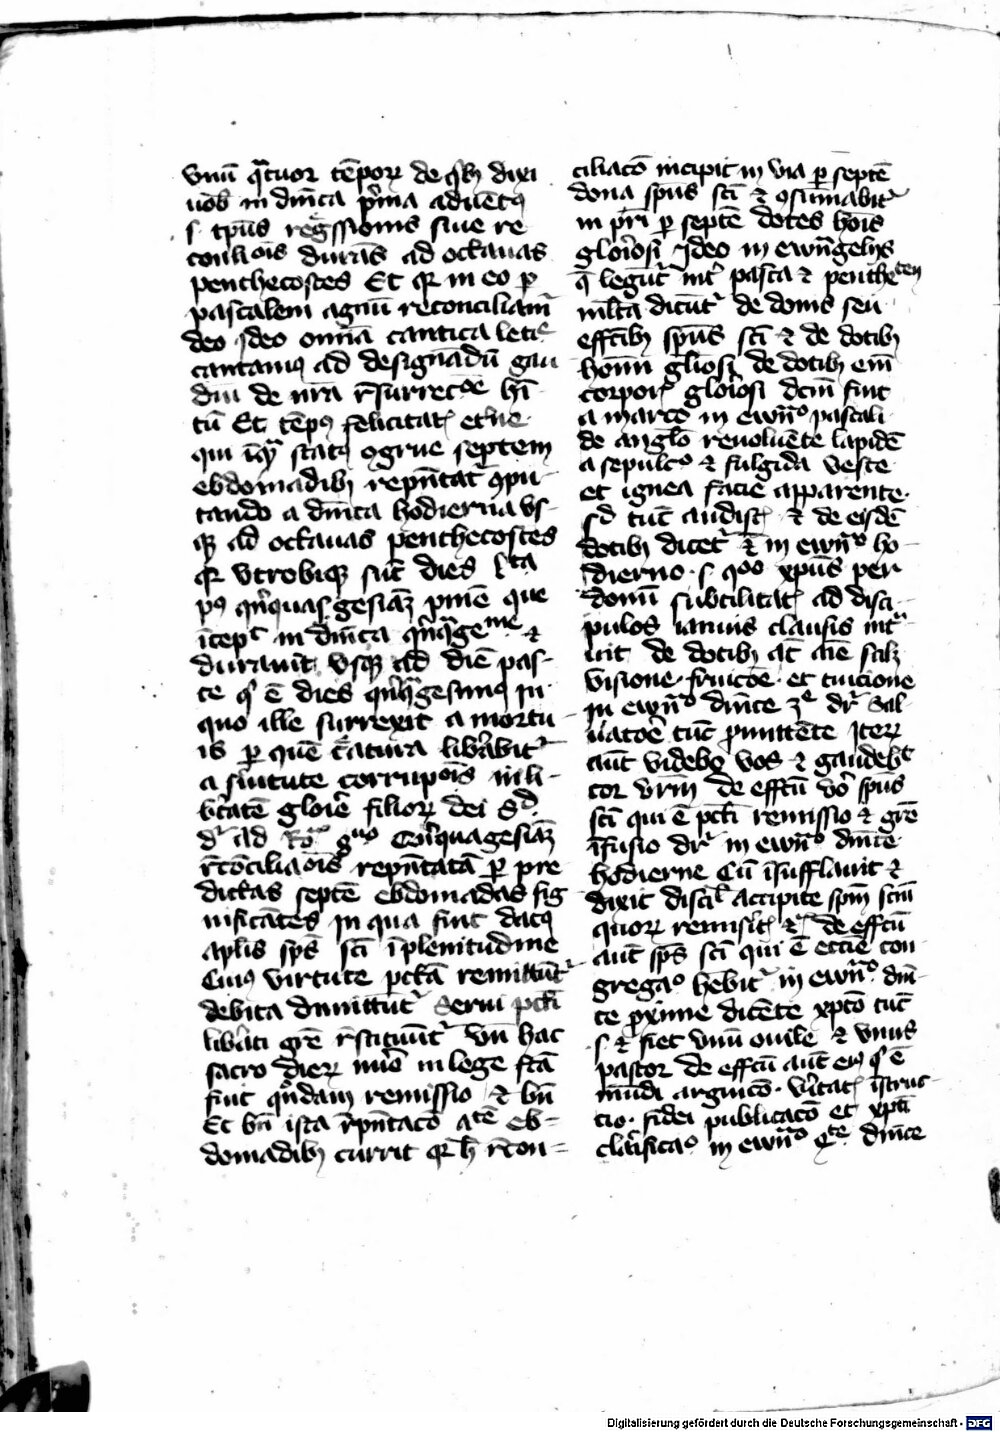 vnū q̄tuor tēporꝝ de qͥbꝫ dixi
uob̄ in dn̄ica pͥma aduētꝰ
s tpūs regͣssionis siue re
conliōis durās ad octauas
penthecostes Et qꝛ in eo ꝑ
pascalem agnū reconciliam̄
deo Ideo omīa cantica letiͤ
cantamꝰ ad designādū gau
diū de nr̄a rēsurrecōe hi
tū Et tēpꝰ felicitatꝭ et̄ne
qui statꝰ ꝯgrue septem
ebdomadibꝫ rep̄ntat̄ ꝯpu
tando a dn̄ica hodierna vs
qꝫ ad octauas penthecostes
qꝛ vtrobiqꝫ sūt dies lᵗᵃ
pꝰ qͥnquagesiāꝫ pn̄ie que
īcepͭ in dn̄ica qͥnqͣgeᵐᵉ ⁊
durauit vsqꝫ ad diē pas
ce qͥ ē dies qͥnqͣgesimꝰ in
quo ille surrexit a mortu
is ꝑ quē cͤatura libͤabitᷣ
a siutute corrupōis in li
bͤtatē glorie filioꝝ dei Sᵈ
dᷣ ad Ro 8ᵘᵒ Qͥnquagesiāꝫ
rēcōciliaōis rep̄ntatā ꝑ pre
dictas septē ebdomadas sig
nificātes in qua fiut datꝰ
apl̄is sp̄s sc̄i ī plenitudine
Cuiꝰ virtute pctā remittūtᷣ
debita dimittūtᷣ Serui pcti
libͤati grē rēstituūtᷣ vn̄ hac
sacro dieꝝ nūo in lege scā
fiut qͣdam remissio ⁊ bn̄
Et bn̄ ista rēp̄ntacō aᵗᵉ eb
domadibꝫ currit qꝛ h̄ rēcon
ciliacō incipit in via ꝑ septē
dona spūs sc̄i ⁊ ꝯsūmabitᷣ
in pr̄i ꝑ septē dotes hōis
gloͥosi Ideo in ewn̄gelijs
q̄ legūtᷣ intᷣ pasca ⁊ pentheᶜᵗᵉⁿ
ml̄ta dicūtᷣ de donis seu
effctibꝫ spūs sc̄i ⁊ de dotibꝫ
hoīm gl̄iosi de dotibꝫ em̄
corporꝭ gloͥosi dcm̄ fiut
a marco in ewn̄ᵒ pascali
de angl̄o reuoluēte lapidē
a sepulcᵒ ⁊ fulgida veste
et ignea facie apparente
sᵈ tūc audistꝭ ⁊ de eisdē
dotibꝫ dicetᷣ ī in ewn̄ᵒ ho
dierno s qᵒᵒ xpūs per
donū subtilitatꝭ ad disci
pulos ianuis clausis intᷣ
uit de dotibꝫ at̄ aīe salꝫ
visione fruicōe et tuicione
in ewn̄ᵒ dn̄ice 3ᵉ dᷣ Sal
uatoͤ tūc ꝓmittēte Iteꝝ
aūt videbo vos ⁊ gaudebͭ
cor vr̄m de effctū vͦo spūs
sc̄i qui ē pcti remissio ⁊ grē
īfusio dᷣ in ewn̄ᵒ dn̄ice
hodierne Cū īsufflauit ⁊
dixit discil̄ accipite spm̄ scm̄
quoꝝ remisitꝭ ⁊c̄ de effctū
aūt sp̄s sc̄i qui ē ecc̄ie con
gregaᵒ hēbitᷣ in ewn̄ᵒ dni
ce ꝓxime dicēte xpto tūc
s ⁊ fiet vnū ouile ⁊ vnus
pastor de effctū aūt eiꝰ qͥ ē
mūdi arguicō vͤitatꝭ īstruc
tio fidei publicacō et xpi
clarificaᵒ in ewn̄ᵒ qᵗᵉ dn̄ice
Digitalisierung gefördert durch die Deutsche Forschungsgemeinschaft - DFG